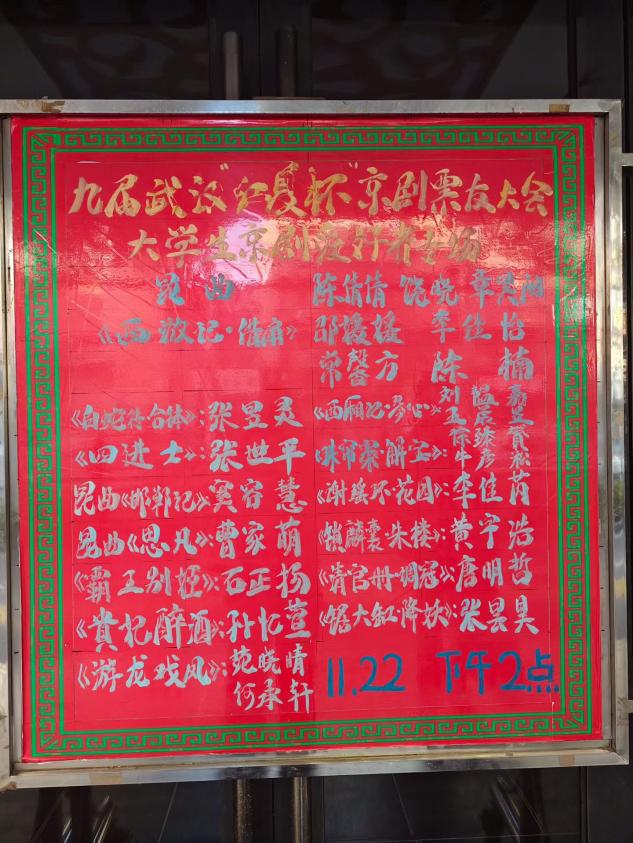 九届武汉“红夏杯”京剧票友大会
大学生京剧爱好者专场
昆曲 陈倩倩 饶晓
《西游记·借扇》 邵媛媛 李佳怡
常馨方 陈楠
《白蛇传合体》:张昱灵
《西厢记·》: 刘孟
《四进士》:张世平
《昧审案解宝》: 牛彦淞
昆曲《邯郸记》:窦容慧
《谢瑶环·花园》:李佳芮
昆曲《思凡》:曹家萌
《锁麟囊·朱楼》:黄宇浩
《霸王别姬》:石正杨
《清官册·调寇》:唐明哲
《贵妃醉酒》:孙忆萱
《锯大缸·降妖》:张昙昊
《游龙戏凤》: 苑晓晴
何承轩
11.22 下午2点